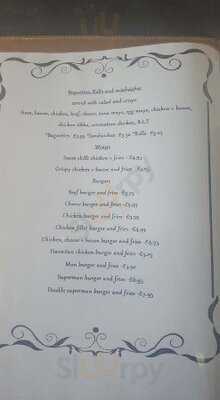 Baguettes, Rolls and sandwiches
served with salad and crisps
Ham, bacon, chicken, beef, cheese, tuna mayo, egg mayo, chicken + bacon,
chicken tikka, coronation chicken, B.L.T
*Baguettes Sandwiches *Rolls
Wraps
Sweet chilli chicken + fries
Crispy chicken + bacon and fries
Burgers
Beef burger and fries
Cheese burger and fries
Chicken burger and fries
Chicken fillet burger and fries
Chicken, cheese + bacon burger and fries
Hawaiian chicken burger and fries
Man burger and fries
Superman burger and fries
Double superman burger and fries
Sirpy